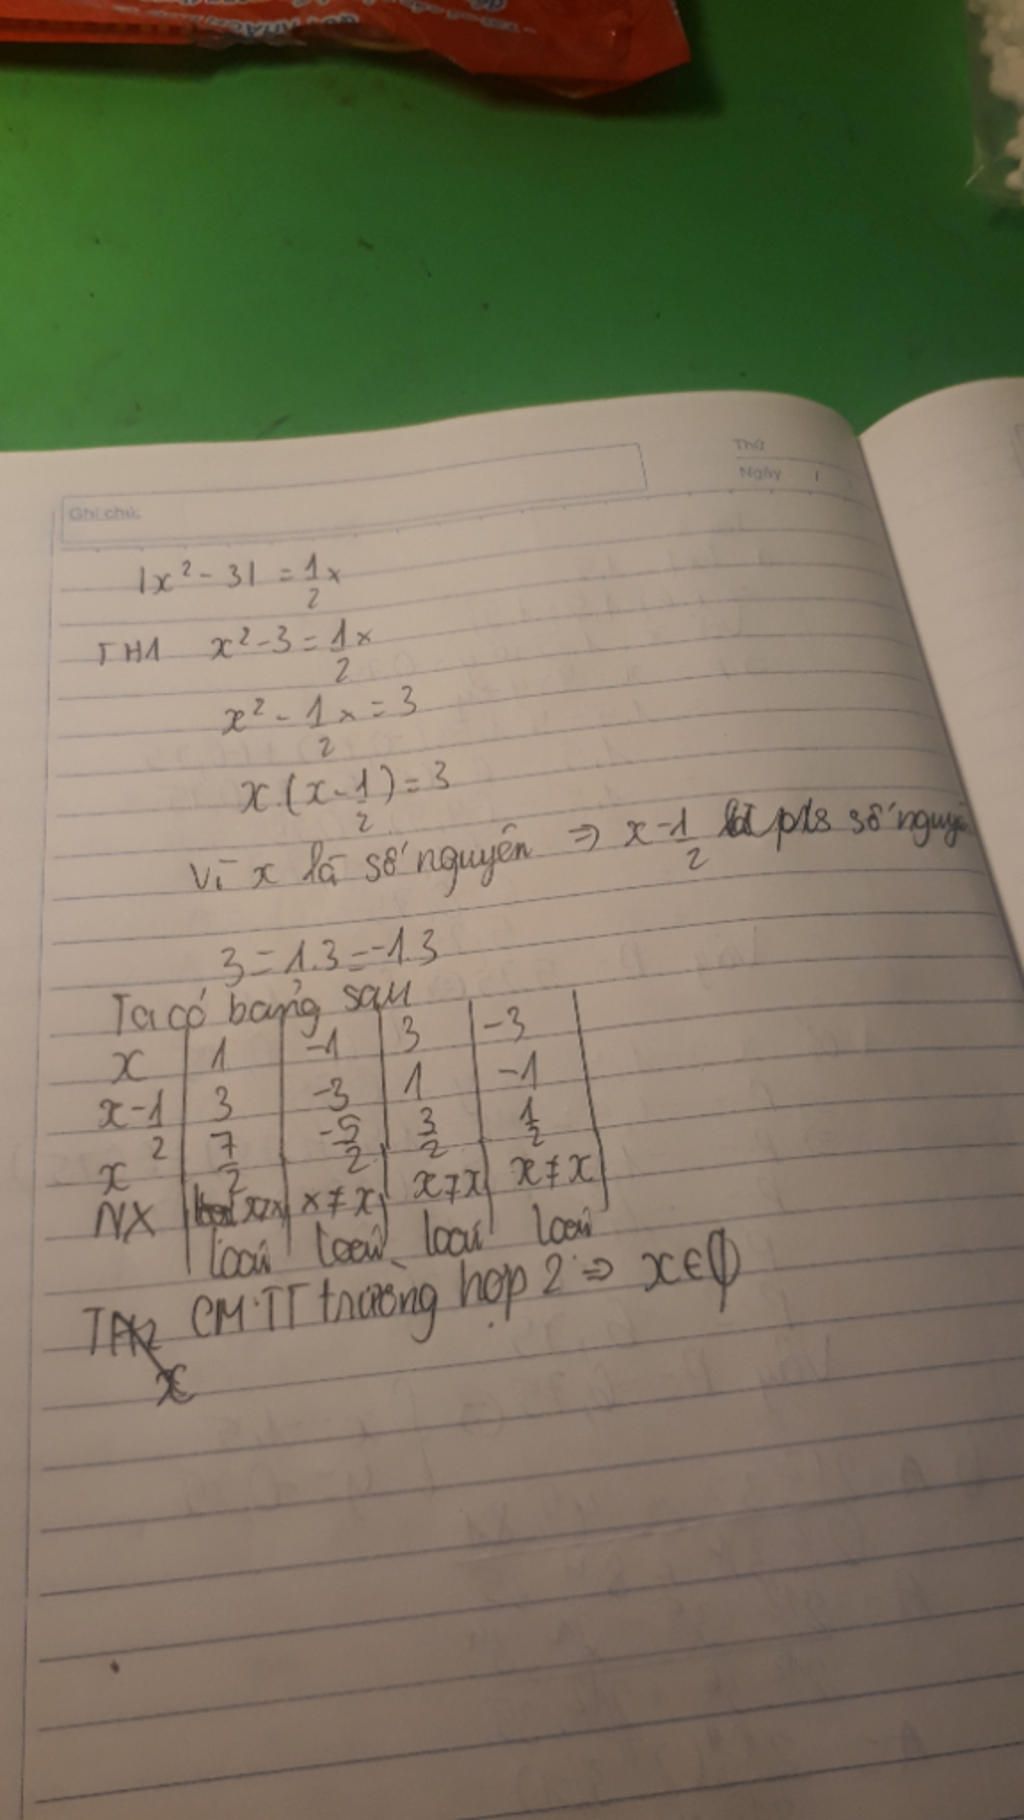 Thứ
Ngày /
Ghi chú:
|x² - 3| = 1/2 x
TH1 x² - 3 = 1/2 x
x² - 1/2 x = 3
x.(x - 1/2) = 3
Vì x là số nguyên => x - 1/2 pls số nguyê
3 = 1.3 = -1.3
Ta có bảng sau
x | 1 | -1 | 3 | -3
x - 1/2 | 3 | -3 | 1 | -1
x | 7/2 | -5/2 | 3/2 | 1/2
NX | x≠x | x≠x | x≠x | x≠x
loại loại loại loại
CM.TT trường hợp 2 => x ∈ ∅
x